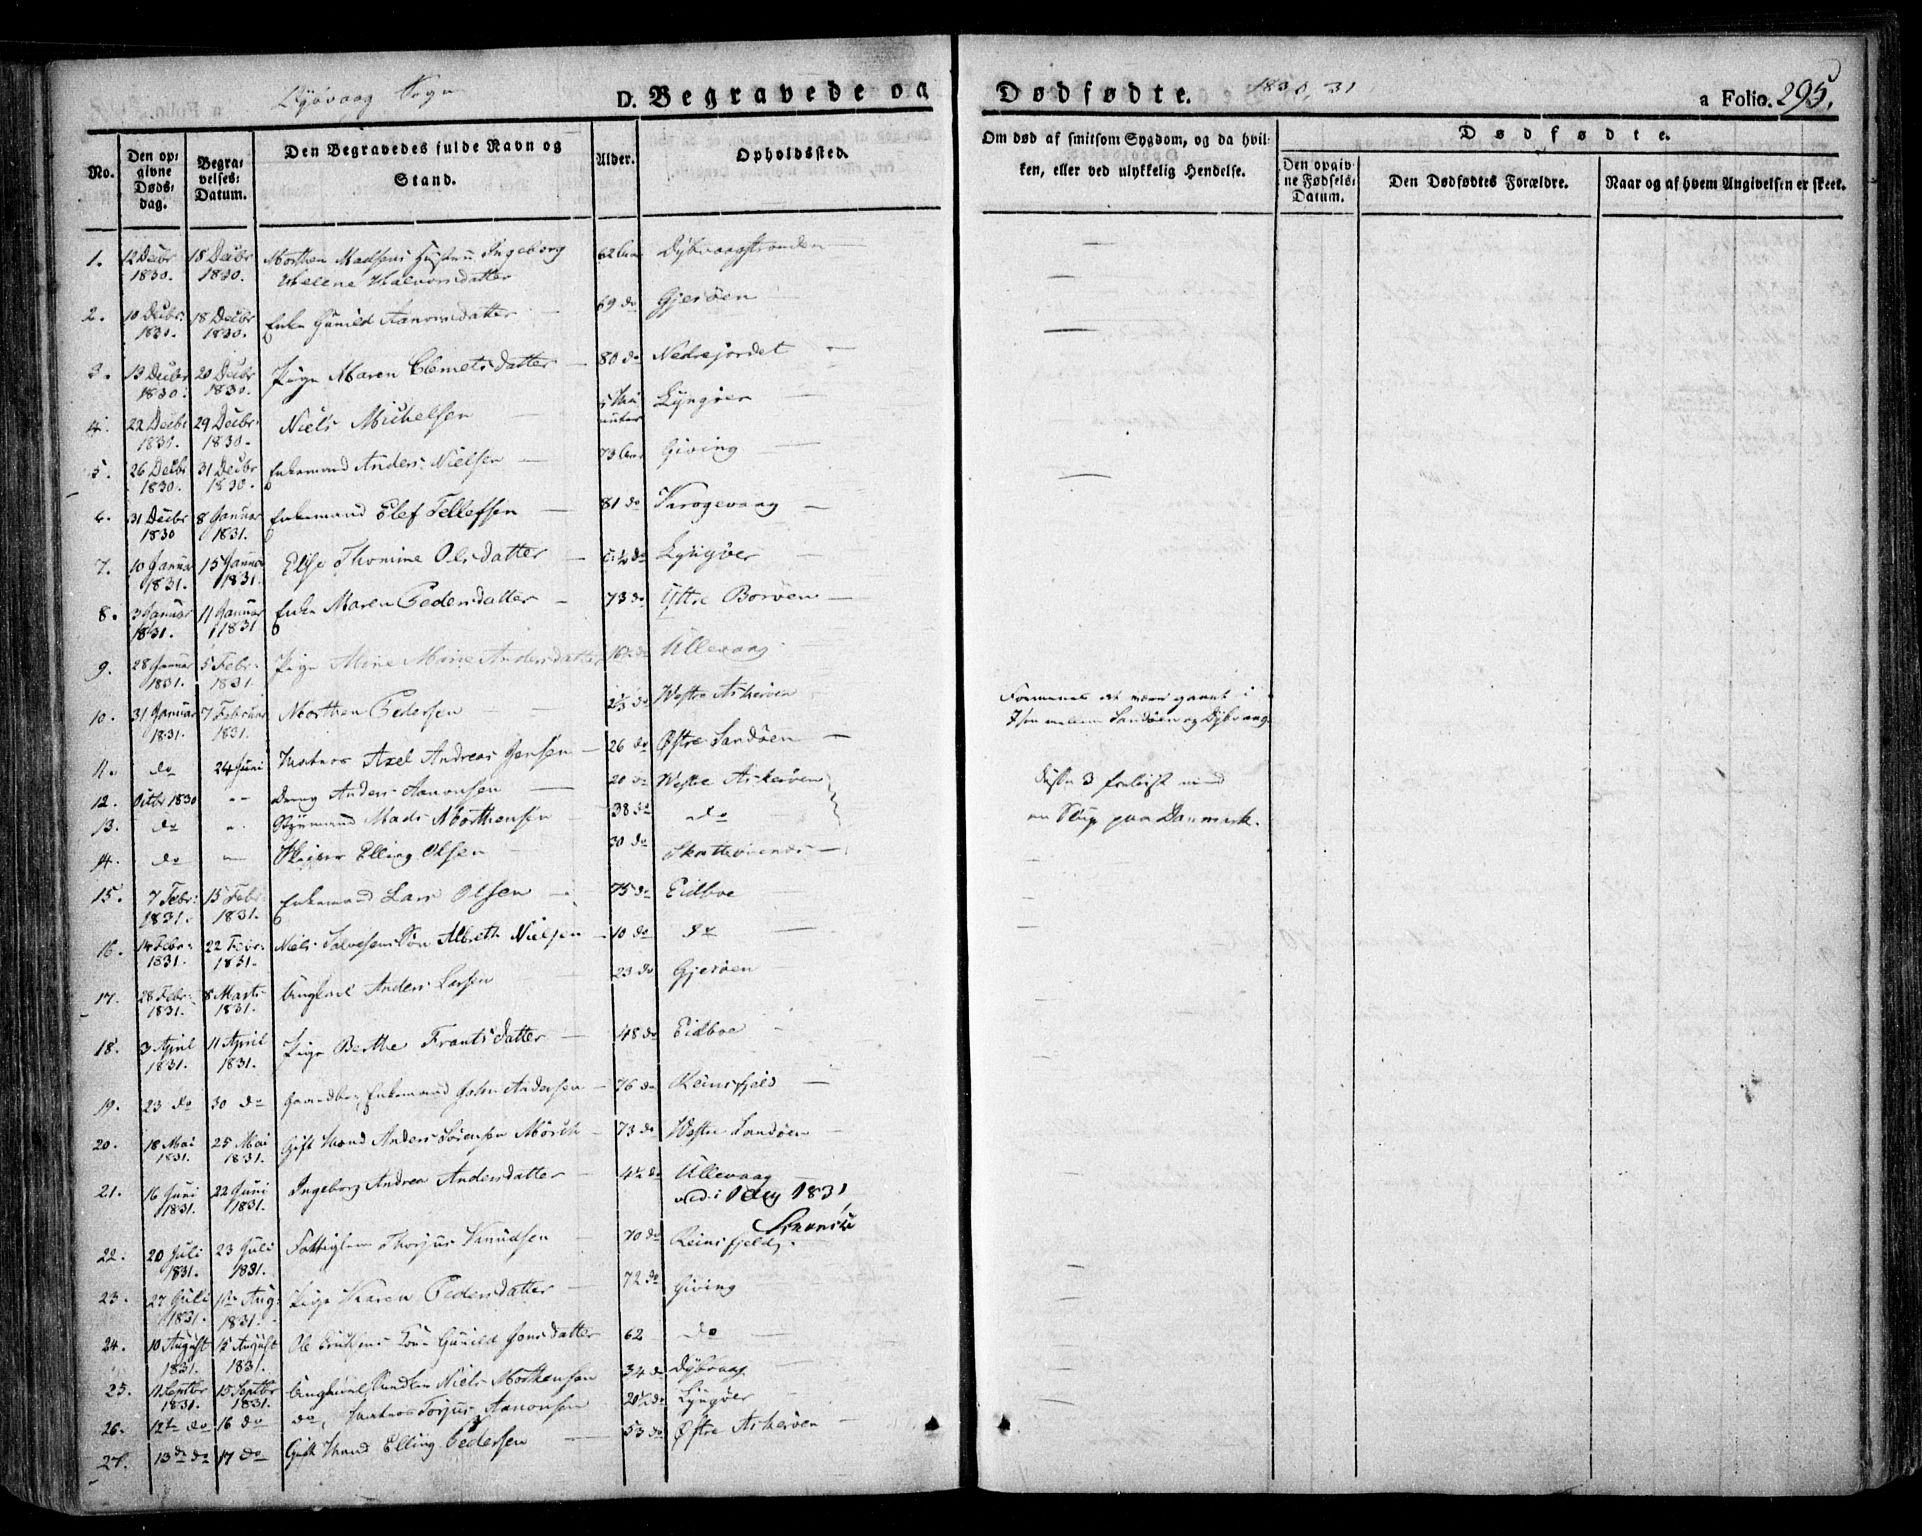 Dybvaag Sogn
D. Begravede og
Dødfødte.
1830, 31
a Folio. 295.
No.
Den op-
givne
Døds-
dag.
Begra-
velses-
Datum.
Den Begravedes fulde Navn og
Stand.
Alder.
Opholdssted.
Om død af smitsom Sygdom, og da hvil-
ken, eller ved ulykkelig Hendelse.
Dødfødte.
Den opgiv-
ne Fødsels-
Datum.
Den Dødfødtes Forældre.
Naar og af hvem Angivelsen er skeet.
1. 12 Decbr 1830. 18 Decbr 1830. Morthen Madsens Hustru Ingeborg
Helene Halvorsdatter 62 Aar Dybvaagstranden —
2. 10 Decbr: 1830. 18 Decbr 1830. Enke Gunild Aanonsdatter 69 do Gjerøen —
3. 13 Decbr 1830. 20 Decbr 1830. Pige Maren Clemetsdatter 80 do Nedrejordet —
4. 22 Decbr 1830. 29 Decbr 1830. Niels Michelsen Lyngøer
5. 26 Decbr 1830. 31 Decbr 1830. Enkemand Anders Nielsen 73 Aar Giving —
6. 31 Decbr 1830 8 Januar 1831. Enkemand Elef Tellefsen 81 do Krogevaag —
7. 10 Januar 1831. 15 Januar 1831. Else Thomine Olsdatter Lyngøer —
8. 3 Januar 1831. 11 Januar 1831 Enke Maren Pedersdatter 73 do Østre Borøen —
9. 28 Januar 1831. 5 Febr. 1831. Pige Aline Marie Andersdatter Ullevaag
10. 31 Januar 1831. 7 Februar 1831. Morthen Pedersen Westre Askerøen Formenes at være gaaet i
Isen mellem Sandøen og Dybvaag
11. do 24 Juni Matros Axel Andreas Jensen 26 do Østre Sandøen —
12. Octbr 1830 " Dreng Anders Aanonsen 20 do Westre Askerøen disse 3 forliist med
13. do " Styrmand Mads Morthensen 38 do do en Slup paa Danmark.
14. do " Skipper Elling Olsen 30 do
15. 7 Febr: 1831. 15 Febr: 1831. Enkemand Lars Olsen 75 do Eidboe —
16. 14 Febr: 1831. 22 Febr: 1831. Niels Salvesens Søn Albreth Nielsen 10 do do —
17. 28 Febr: 1831. 8 Marts 1831. Ungkarl Anders Larsen 23 do Gjerøen —
18. 3 April 1831. 11 April 1831. Pige Berthe Frantsdatter 48 do Eidboe
19. 23 do 30 do Gaardbr. Enkemand John Andersen 76 do Reinsfjeld —
20. 18 Mai 1831. 25 Mai 1831. Gift Mand Anders Sørensen Mörch 73 do Westre Sandøen —
21. 16 Juni 1831. 22 Juni 1831. Ingeborg Andrea Andersdatter Ullevaag
1831
22. 20 Juli 1831. 23 Juli 1831. Fattiglem Thorjus Knudsen 70 do Reinsfjeld
23. 27 Juli 1831. 1ste Aug: 1831. Pige Karen Pedersdatter 72 do Giving
24. 10 August 1831. 15 August 1831. Ole Gunild Jensdatter 62 do
25. 11 Septbr 1831. 15 Septbr 1831. Ungkarl Niels Morthensen 34 do Dybvaag
26. 12te do 16 do do, Matros Torjus Aanonsen Lyngøer
27. 13de do 17 do Gift Mand Elling Pedersen 53 do Østre Askerøen —